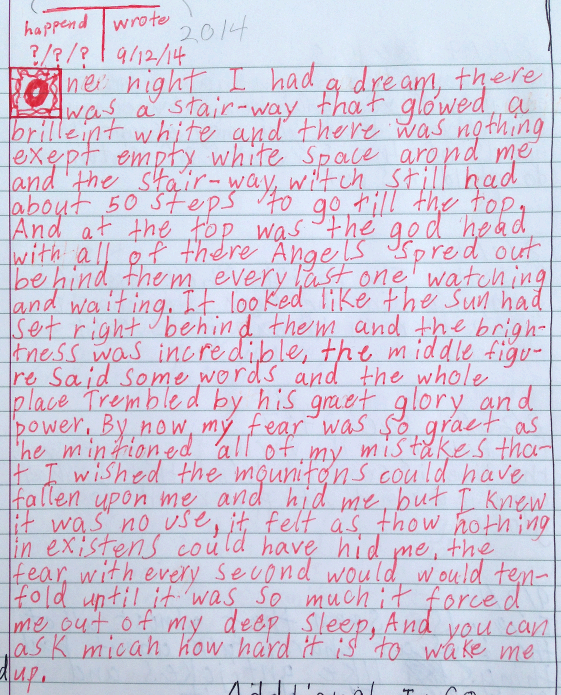 happend wrote 2014
?/?/? 9/12/14
One night I had a dream, there
was a stair-way that glowed a
brilleint white and there was nothing
exept empty white space arond me
and the stair-way, witch still had
about 50 steps to go till the top.
And at the top was the god head
with all of there Angels spred out
behind them every last one watching
and waiting. It looked like the sun had
set right behind them and the brigh-
tness was incredible, the middle figu-
re said some words and the whole
place trembled by his graet glory and
power. By now my fear was so graet as
he mintioned all of my mistakes tha-
t I wished the mounitons could have
fallen upon me and hid me but I knew
it was no use, it felt as thow nothing
in existens could have hid me. the
fear with every second would would ten-
fold until it was so much it forced
me out of my deep sleep, And you can
ask micah how hard it is to wake me
up.